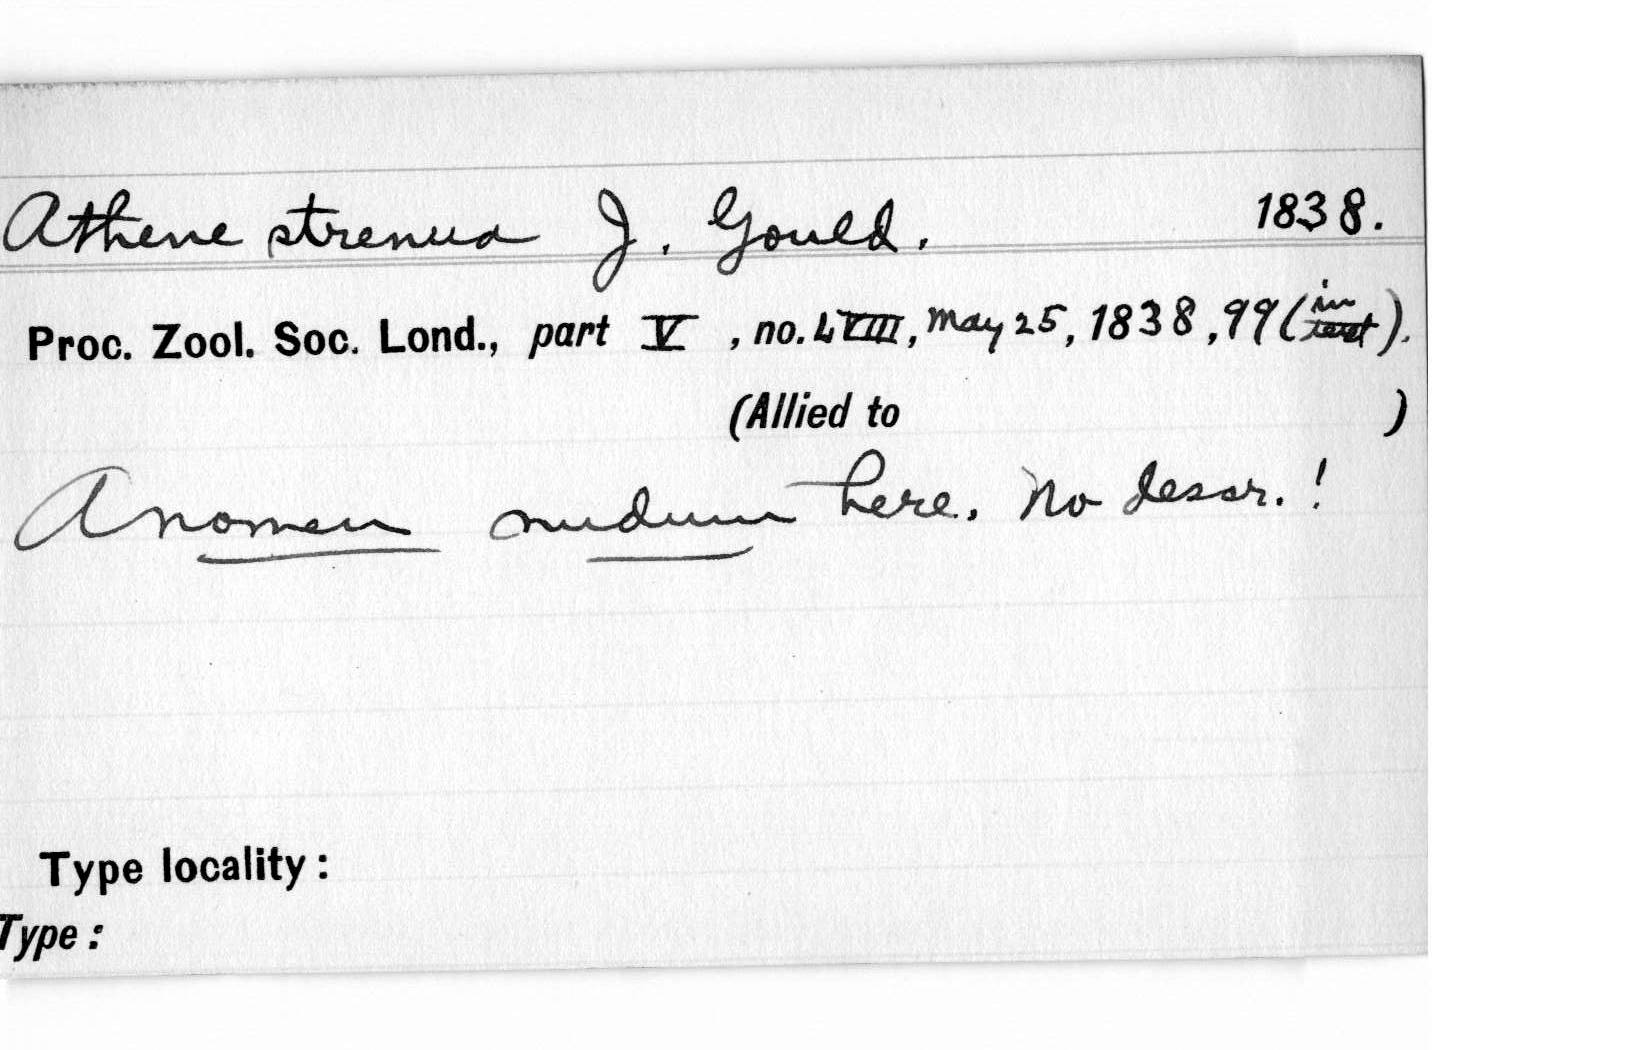 Athene strenua J. Gould. 1838.
Proc. Zool. Soc. Lond., part V, no. LVIII, May 25, 1838, 99 (in text).
(Allied to )
A nomen nudum here. No descr.!
Type locality:
Type: